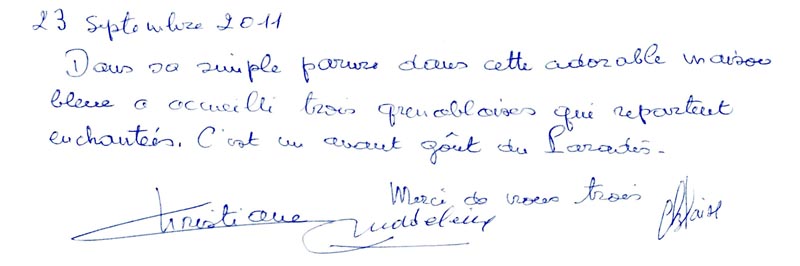 23 Septembre 2011
Dans sa simple parure dans cette adorable maison
bleue a accueilli trois grenobloises qui repartent
enchantées. C'est un avant goût du Paradis.
Merci de nous trois
Christiane Madeleine